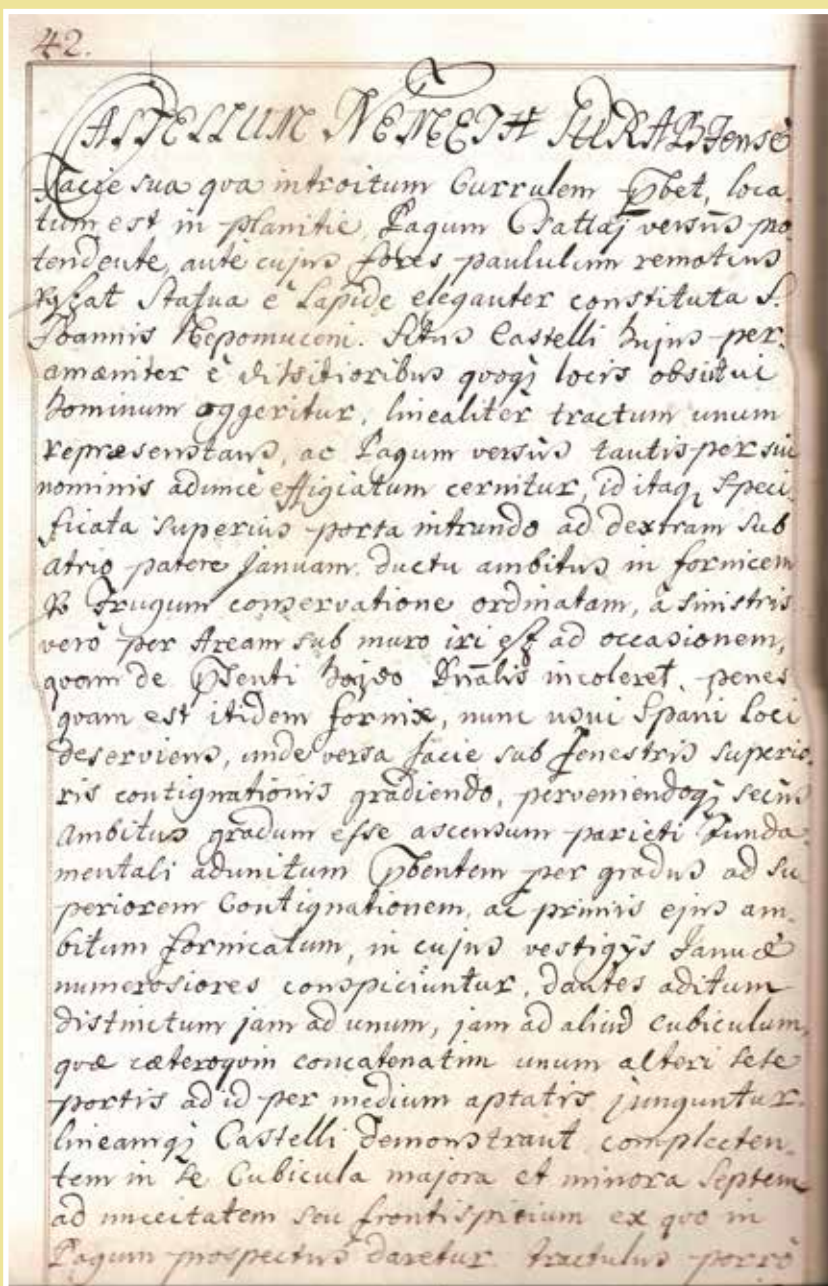 42.
CASTELLUM NEMETH SURÁNYense
Facie sua qva introitum Currulem p̃bet, loca
tum est in planitie, Pagum Csattaj versus pro
tendente, ante cujus fores paululum remotius
Statua è Lapide eleganter constituta S.
Joannis Nepomuceni. Situs Castelli hujus per
amæniter è ditsitioribus qvoqȝ locis obsitui
hominum aggeritur, linealiter tractum unum
repræsentans, ac Pagum versus tantisper sui
nominis aduncè effigiatum cernitur, id itaqȝ Speci
ficata superius porta intrando ad dextram sub
atrio patere Januam ductu ambitus in fornicem
Frugum conservatione ordinatam, à sinistris
verò per Aream sub muro iri est ad occasionem,
qvam de p̃senti Dnãlis incoleret, penes
qvam est itidem fornix, nunc usui Spani Loci
deserviens, unde versa facie sub fenestris superio
ris contignationis gradiendo, perveniendoqȝ secus
Ambitus gradum esse ascensum parieti Funda
mentali adunitum p̃bentem per gradus ad Su
periorem Contignationem, ac primis ejus am
bitum fornicatum, in cujus vestigÿs Januæ
numerosiores conspiciuntur, dantes aditum
distinctum jam ad unum, jam ad aliud cubiculum,
qvæ cæteroqvin concatenatim unum alteri sese
portis ad id per medium aptatis junguntur.
lineamqȝ Castelli demonstrant complecten
tem in se Cubicula majora et minora Septem
ad unceitatem seu frontispitium ex qvo in
Pagum prospectus daretur. tractulus porrò